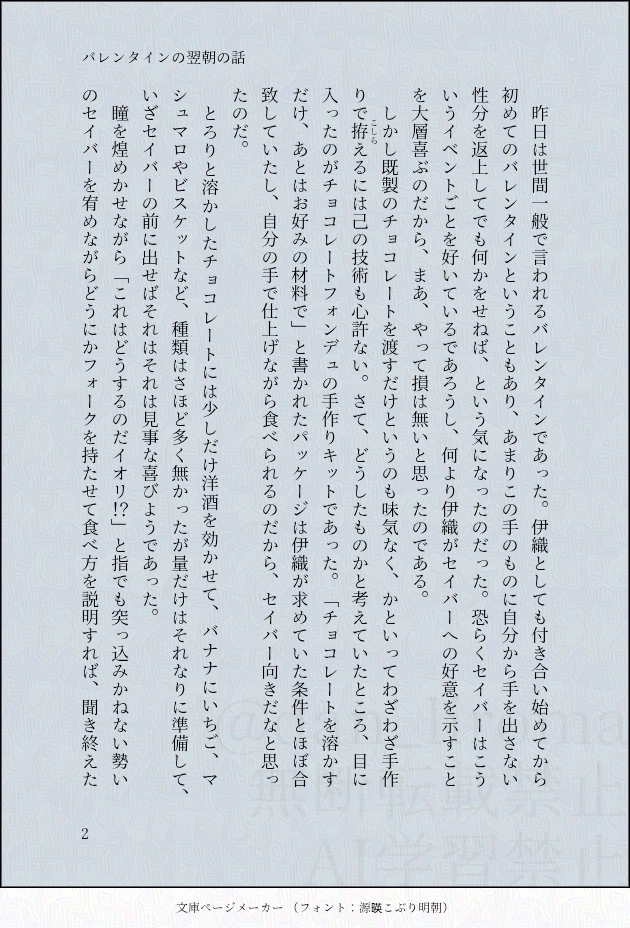 バレンタインの翌朝の話
昨日は世間一般で言われるバレンタインであった。伊織としても付き合い始めてから
初めてのバレンタインということもあり、あまりこの手のものに自分から手を出さない
性分を返上してでも何かをせねば、という気になったのだった。恐らくセイバーはこう
いうイベントごとを好いているであろうし、何より伊織がセイバーへの好意を示すこと
を大層喜ぶのだから、まあ、やって損は無いと思ったのである。
しかし既製のチョコレートを渡すだけというのも味気なく、かといってわざわざ手作
りで拵えるには己の技術も心許ない。さて、どうしたものかと考えていたところ、目に
こしら
入ったのがチョコレートフォンデュの手作りキットであった。「チョコレートを溶かす
だけ、あとはお好みの材料で」と書かれたパッケージは伊織が求めていた条件とほぼ合
致していたし、自分の手で仕上げながら食べられるのだから、セイバー向きだなと思っ
たのだ。
とろりと溶かしたチョコレートには少しだけ洋酒を効かせて、バナナにいちご、マ
シュマロやビスケットなど、種類はさほど多く無かったが量だけはそれなりに準備して、
いざセイバーの前に出せばそれはそれは見事な喜びようであった。
瞳を煌めかせながら「これはどうするのだイオリ!?」と指でも突っ込みかねない勢い
のセイバーを宥めながらどうにかフォークを持たせて食べ方を説明すれば、聞き終えた
2
無断転載禁止
AI学習禁止
文庫ページメーカー（フォント：源暎こぶり明朝）